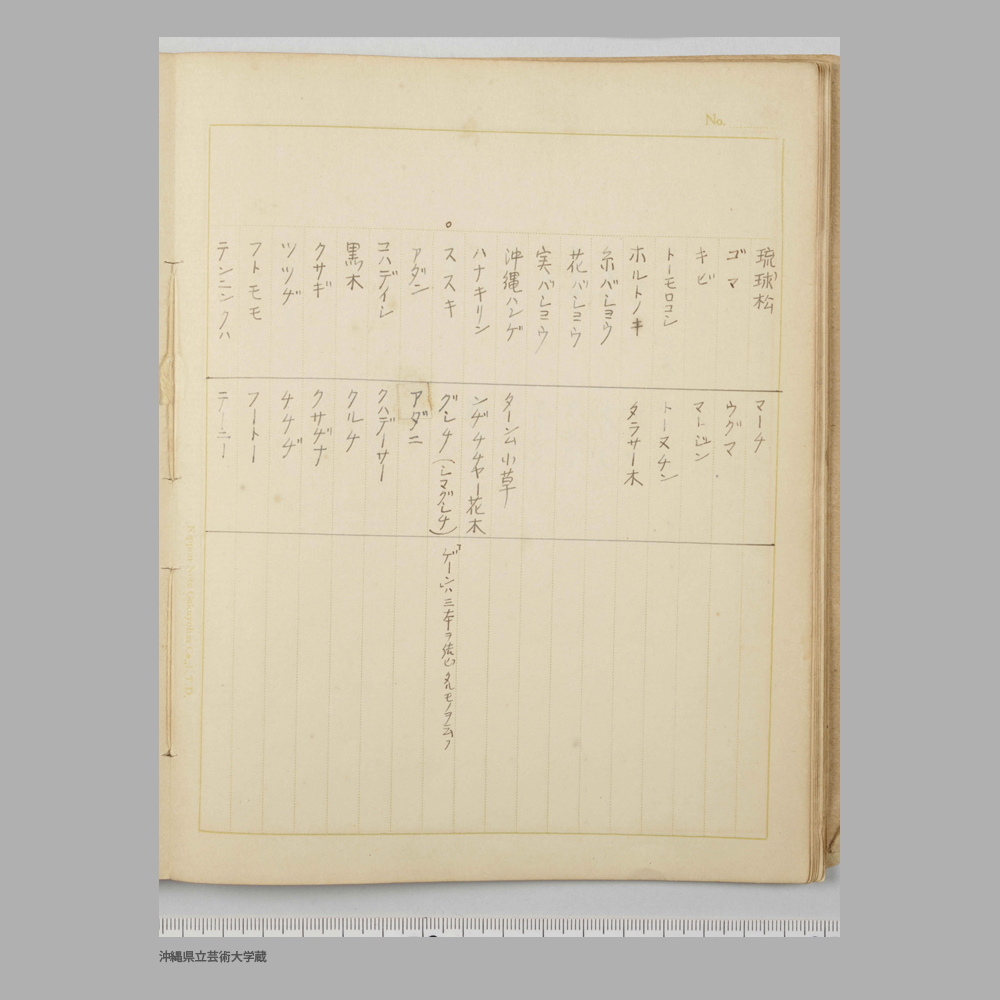 No.
琉球松 マーチ
ゴマ ウグマ
キビ マージン
トーモロコシ トーヌチン
ホルトノキ タラサー木
糸バショウ
花バショウ
実バショウ
沖縄ハンゲ ターンム小草
ハナキリン ンヂチチャー花木
ススキ グシチ(シマグシチ) 「ゲーン」ハ三本ヲ結ビタルモノヲ云フ
アダン アダニ
コハデイシ クハデーサー
黒木 クルチ
クサギ クサヂナ
ツツヂ チチヂ
フトモモ フートー
テンニンクハ テーニー
沖縄県立芸術大学蔵